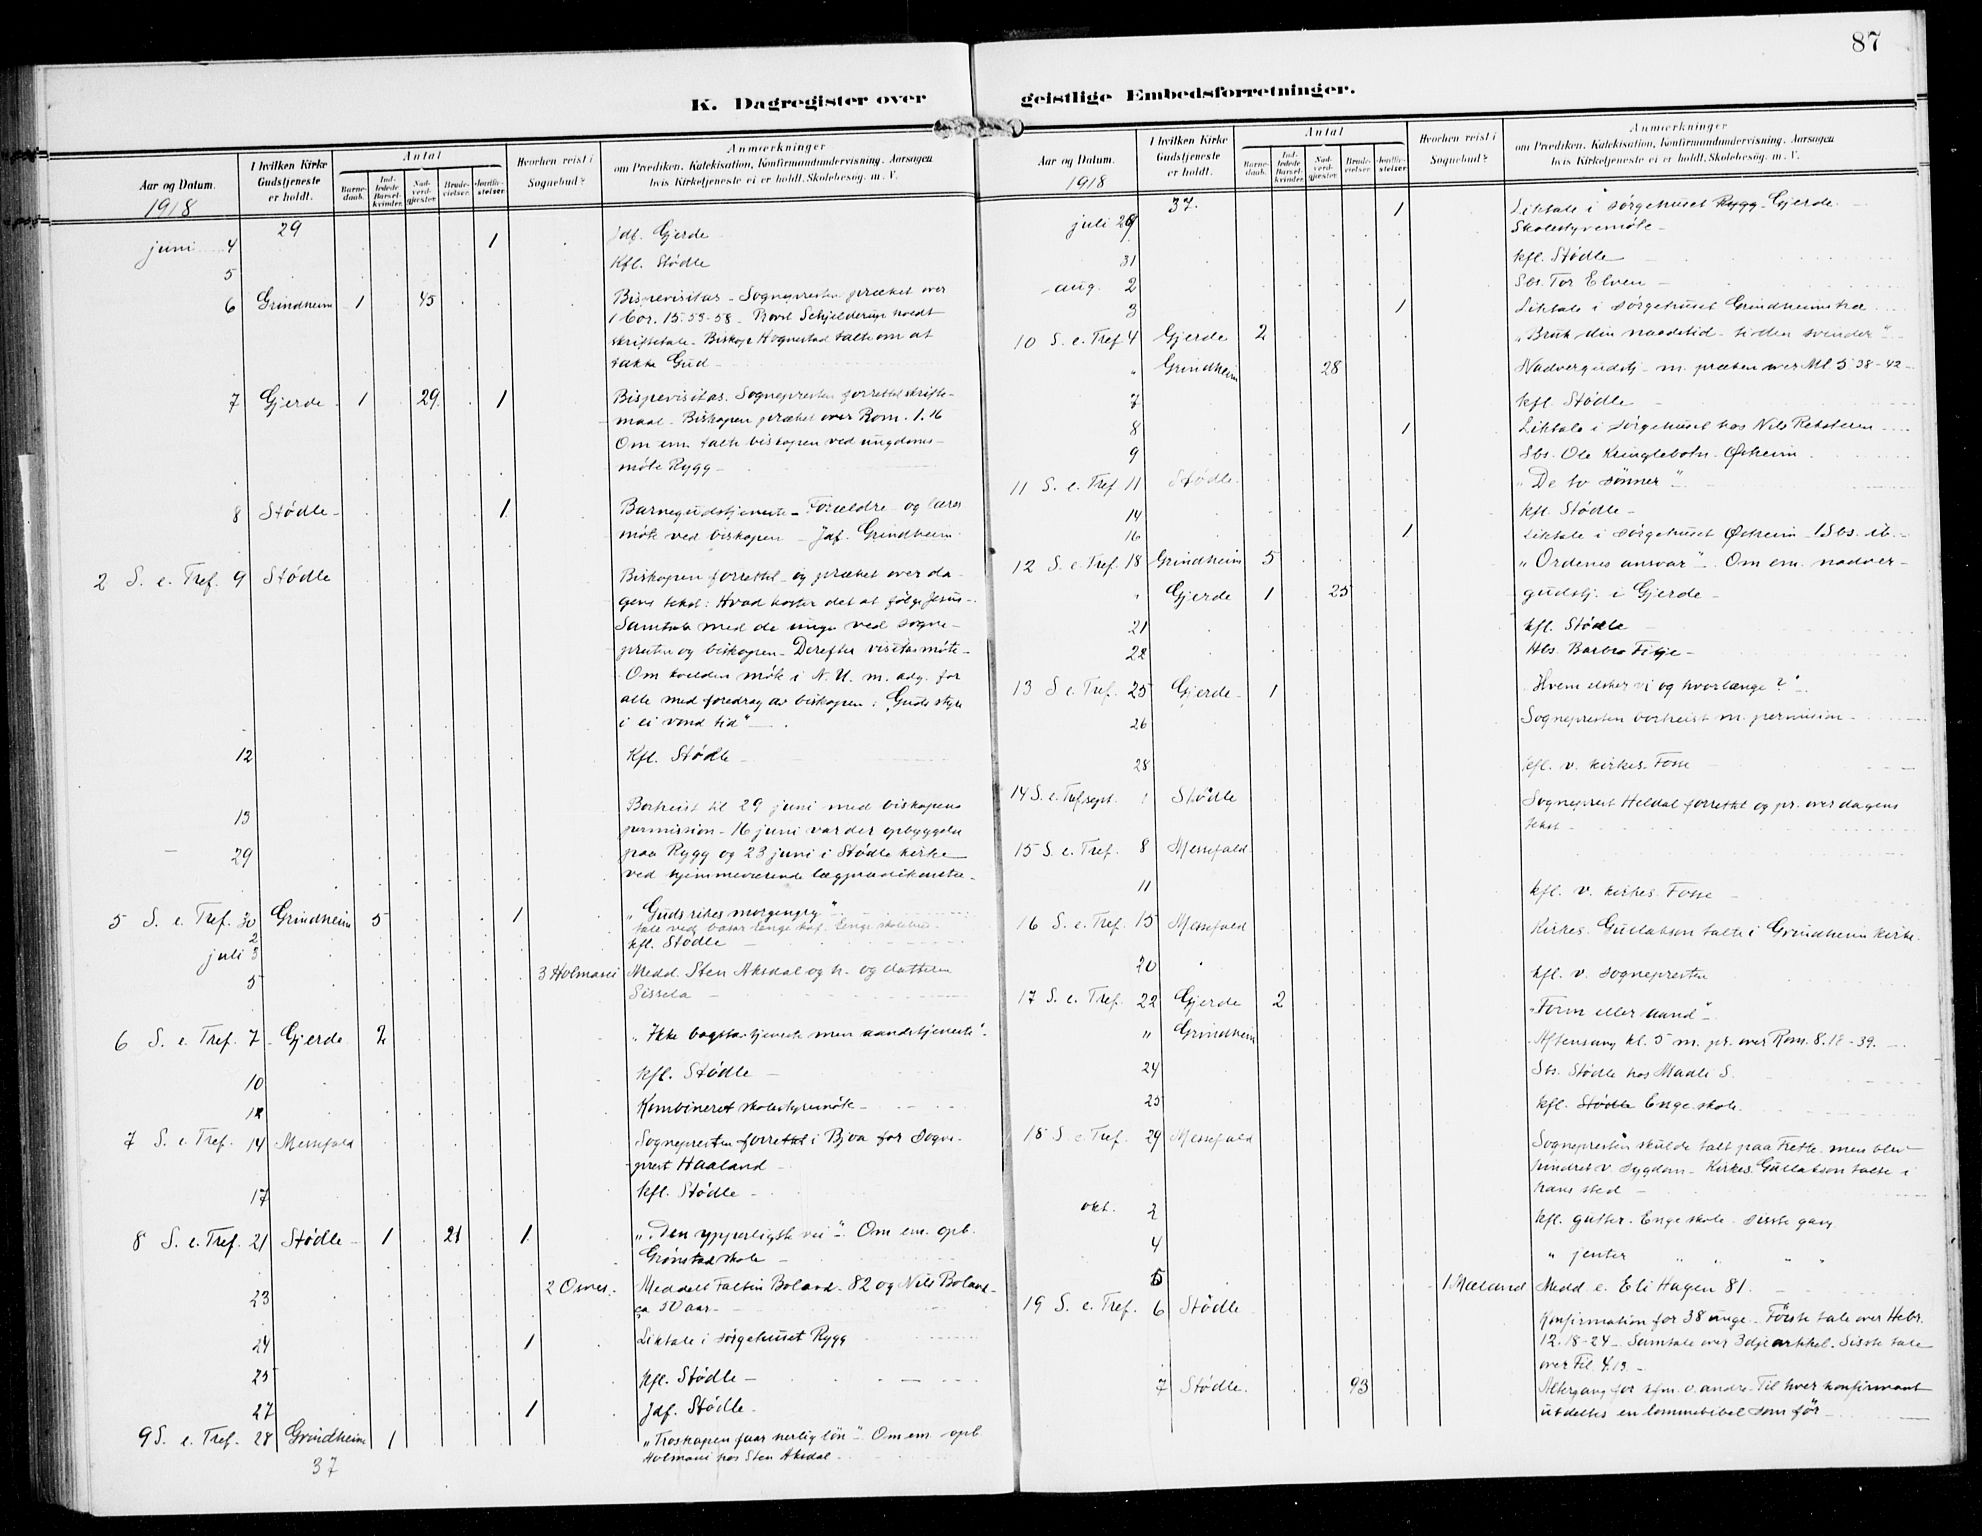 87
K. Dagregister over
Aar og Datum.
1918
I hvilken Kirke
Gudstjeneste
er holdt.
Antal
Barne-
daab.
Ind-
ledede
Barsel-
kvinder.
Nad-
verd-
gjæster.
Brude-
vielser.
Jordfæ-
stelser.
Hvorhen reist i
Sognebud?
Anmærkninger
om Prædiken, Katekisation, Konfirmandundervisning, Aarsagen
hvis Kirketjeneste ei er holdt, Skolebesøg, m. V.
29
juni 4 1 Jdf. Gjerde
5 Kfl. Stødle
6 Grindheim 1 45 Bispevisitas - Sognepresten præket over
1 Cor. 15. 53-58 - Provst Schjelderup holdt
skriftetale - Biskop Hognestad talte om at
takke Gud -
7 Gjerde 1 29 1 Bispevisitas. Sognepresten forrettet skrifte-
maal - Biskopen præket over Rom. 1.16
Om em. talte biskopen ved ungdoms-
møte Rygg -
8 Stødle - 1 Barnegudstjeneste - Forældre - og lærer
møte ved biskopen - Jdf. Grindheim
2 S. e. Tref. 9 Stødle Biskopen forrettet - og præket over da-
gens tekst: Hvad koster det at følge Jesus -
Samtale med de unge ved sogne-
presten og biskopen - Derefter visitasmøte -
Om kvelden møte i N. U. m. adg. for
alle med foredrag av biskopen: "Guds styre
i ei vond tid" -
12 Kfl. Stødle -
13 Bortreist til 29 juni med biskopens
permission - 16 juni var der opbyggelse
29 paa Rygg og 23 juni i Stødle kirke
ved hjemmeværende lægprædikanter -
5 S. e. Tref. 30 Grindheim 5 1 "Guds rikes morgengry" -
2 tale ved basar Enge
juli 3 kfl. Stødle -
5 3 Holmani Medd. Sten Aksdal og h. og datteren
Sissela -
6 S. e. Tref. 7 Gjerde 2 "Ikke bogstavtjeneste men aandstjeneste".
10 kfl. Stødle -
12 Kombineret skolestyremøte -
7 S. e. Tref. 14 Messefald Sognepresten forrettet i Bjoa for sogne-
prest Haaland -
17 kfl. Stødle -
8 S. e. Tref. 21 Stødle - 1 21 1 "Den ypperligste vei" - Om em. opb.
Grønstad skole -
23 2 Osnes. Meddelt Faltin Boland. 82 og Nils Boland -
ca 50 aar -
24 1 Liktale i sørgehuset Rygg
25 kfl. Stødle -
27 1 Jdf. Stødle -
9 S. e. Tref. 28 Grindheim 1 "Troskapen faar herlig løn" - Om em - opb
37 Holmani hos Sten Aksdal -
geistlige Embedsforretninger.
Aar og Datum.
1918
I hvilken Kirke
Gudstjeneste
er holdt.
Antal
Barne-
daab.
Ind-
ledede
Barsel-
kvinder.
Nad-
verd-
gjæster.
Brude-
vielser.
Jordfæ-
stelser.
Hvorhen reist i
Sognebud?
Anmærkninger
om Prædiken, Katekisation, Konfirmandundervisning, Aarsagen
hvis Kirketjeneste ei er holdt, Skolebesøg, m. V.
37. 1 Liktale i sørgehuset Rygg - Gjerde -
juli 29 Skolestyremøte -
31 kfl. Stødle
aug. 2 Sbs. Tor Elven -
3 1 Liktale i sørgehuset Grindheim
10 S. e. Tref 4 Gjerde 2 "Bruk din naadetid - tiden svinder" -
" Grindheim 28 Nadvergudstj - m. præken over Mt 5. 38-42 -
7 kfl. Stødle -
8 1 Liktale i sørgehuset hos Nils
9 Sbs. Ole Kringlebotn - Østheim
11 S. e. Tref 11 Stødle "De to sønner" -
14 kfl. Stødle -
16 1 Liktale i sørgehuset Østheim - Sbs. ib. -
12 S. e. Tref. 18 Grindheim 5 "Ordenes ansvar" - Om em. nadver-
" Gjerde 1 25 gudstj. i Gjerde -
21 kfl. Stødle -
22 Hbs. Barbro Fitje -
13 S e. Tref. 25 Gjerde - 1 "Hvem elsker vi og hvorlænge?" -
26 Sognepresten bortreist m. permision -
28 kfl. v. kirkes. Fosse -
14 S. e. Tref. sept. 1 Stødle Sogneprest Heldal forrettet og pr. over dagens
tekst -
15 S. e. Tref. 8 Messefald
11 kfl. v. kirkes. Fosse -
16 S. e. Tref. 15 Messefald Kirkes. Gullakson talte i Grindheim kirke.
20 kfl. v. sognepresten
17 S. e. Tref. 22 Gjerde 2 "Form eller aand" -
" Grindheim Aftensang kl. 5 m. pr. over Rom. 8. 18-39. -
24 Sbs. Stødle hos Madli S.
25 kfl. Stødle Enge skole.
18 S. e Tref. 29 Messefald Sognepresten skulde talt paa Frette. men blev
hindret v. sygdom - Kirkes. Gullakson talte i
hans sted -
okt. 2 kfl. gutter - Enge skole - sisste gang
4 " jenter " " " "
5 1 Mæland Medd. e. Eli Hagen 81. -
19 S. e. Tref. 6 Stødle Konfirmation for 38 unge - Første tale over Hebr.
12. 18-24 - Samtale over 3dje artikkel. Sisste tale
over Fil. 4.13 -
7 Stødle. 93 Altergang for kfm. o. andre - Til hver konfirmant
utdeltes en lommebibel som før -